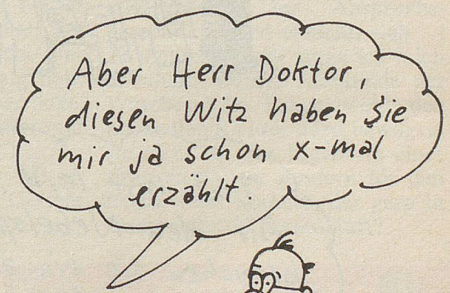 Aber Herr Doktor,
diesen Witz haben Sie
mir ja schon x-mal
erzählt.